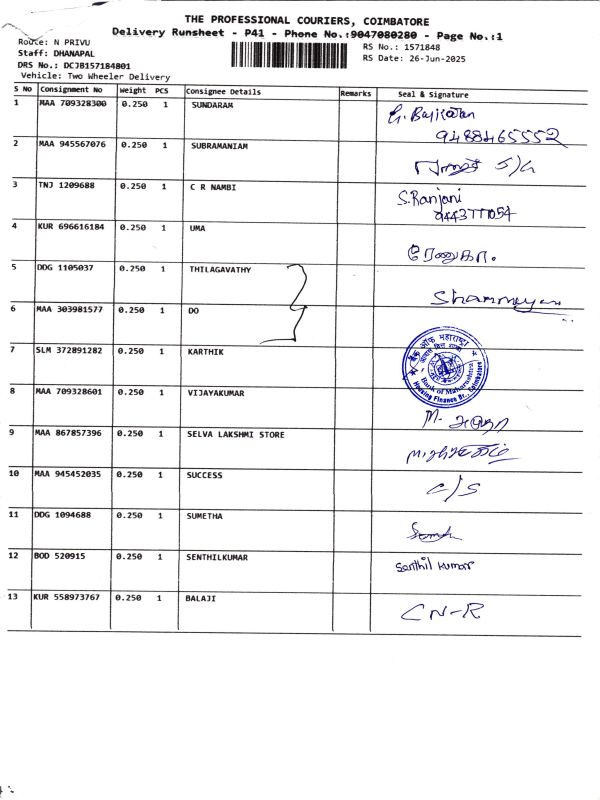 THE PROFESSIONAL COURIERS, COIMBATORE
Delivery Runsheet - P41 - Phone No.:9047080280 - Page No.:1
Route: N PRIVU
RS No.: 1571848
Staff: DHANAPAL
RS Date: 26-Jun-2025
DRS No.: DCJB157184801
Vehicle: Two Wheeler Delivery
S No Consignment No Weight PCS Consignee Details Remarks Seal & Signature
1 MAA 709328300 0.250 1 SUNDARAM
9488465552
2 MAA 945567076 0.250 1 SUBRAMANIAM S/G
3 TNJ 1209688 0.250 1 C R NAMBI S.Ranjani
4 KUR 696616184 0.250 1 UMA ரேணுகா.
5 DDG 1105037 0.250 1 THILAGAVATHY
6 MAA 303981577 0.250 1 DO
7 SLM 372891282 0.250 1 KARTHIK
बैंक ऑफ महाराष्ट्र
Bank of Maharashtra
Housing Finance Br., Coimbatore
8 MAA 709328601 0.250 1 VIJAYAKUMAR
9 MAA 867857396 0.250 1 SELVA LAKSHMI STORE
10 MAA 945452035 0.250 1 SUCCESS C/S
11 DDG 1094688 0.250 1 SUMETHA
12 BOD 520915 0.250 1 SENTHILKUMAR Senthil Kumar
13 KUR 558973767 0.250 1 BALAJI CN-R